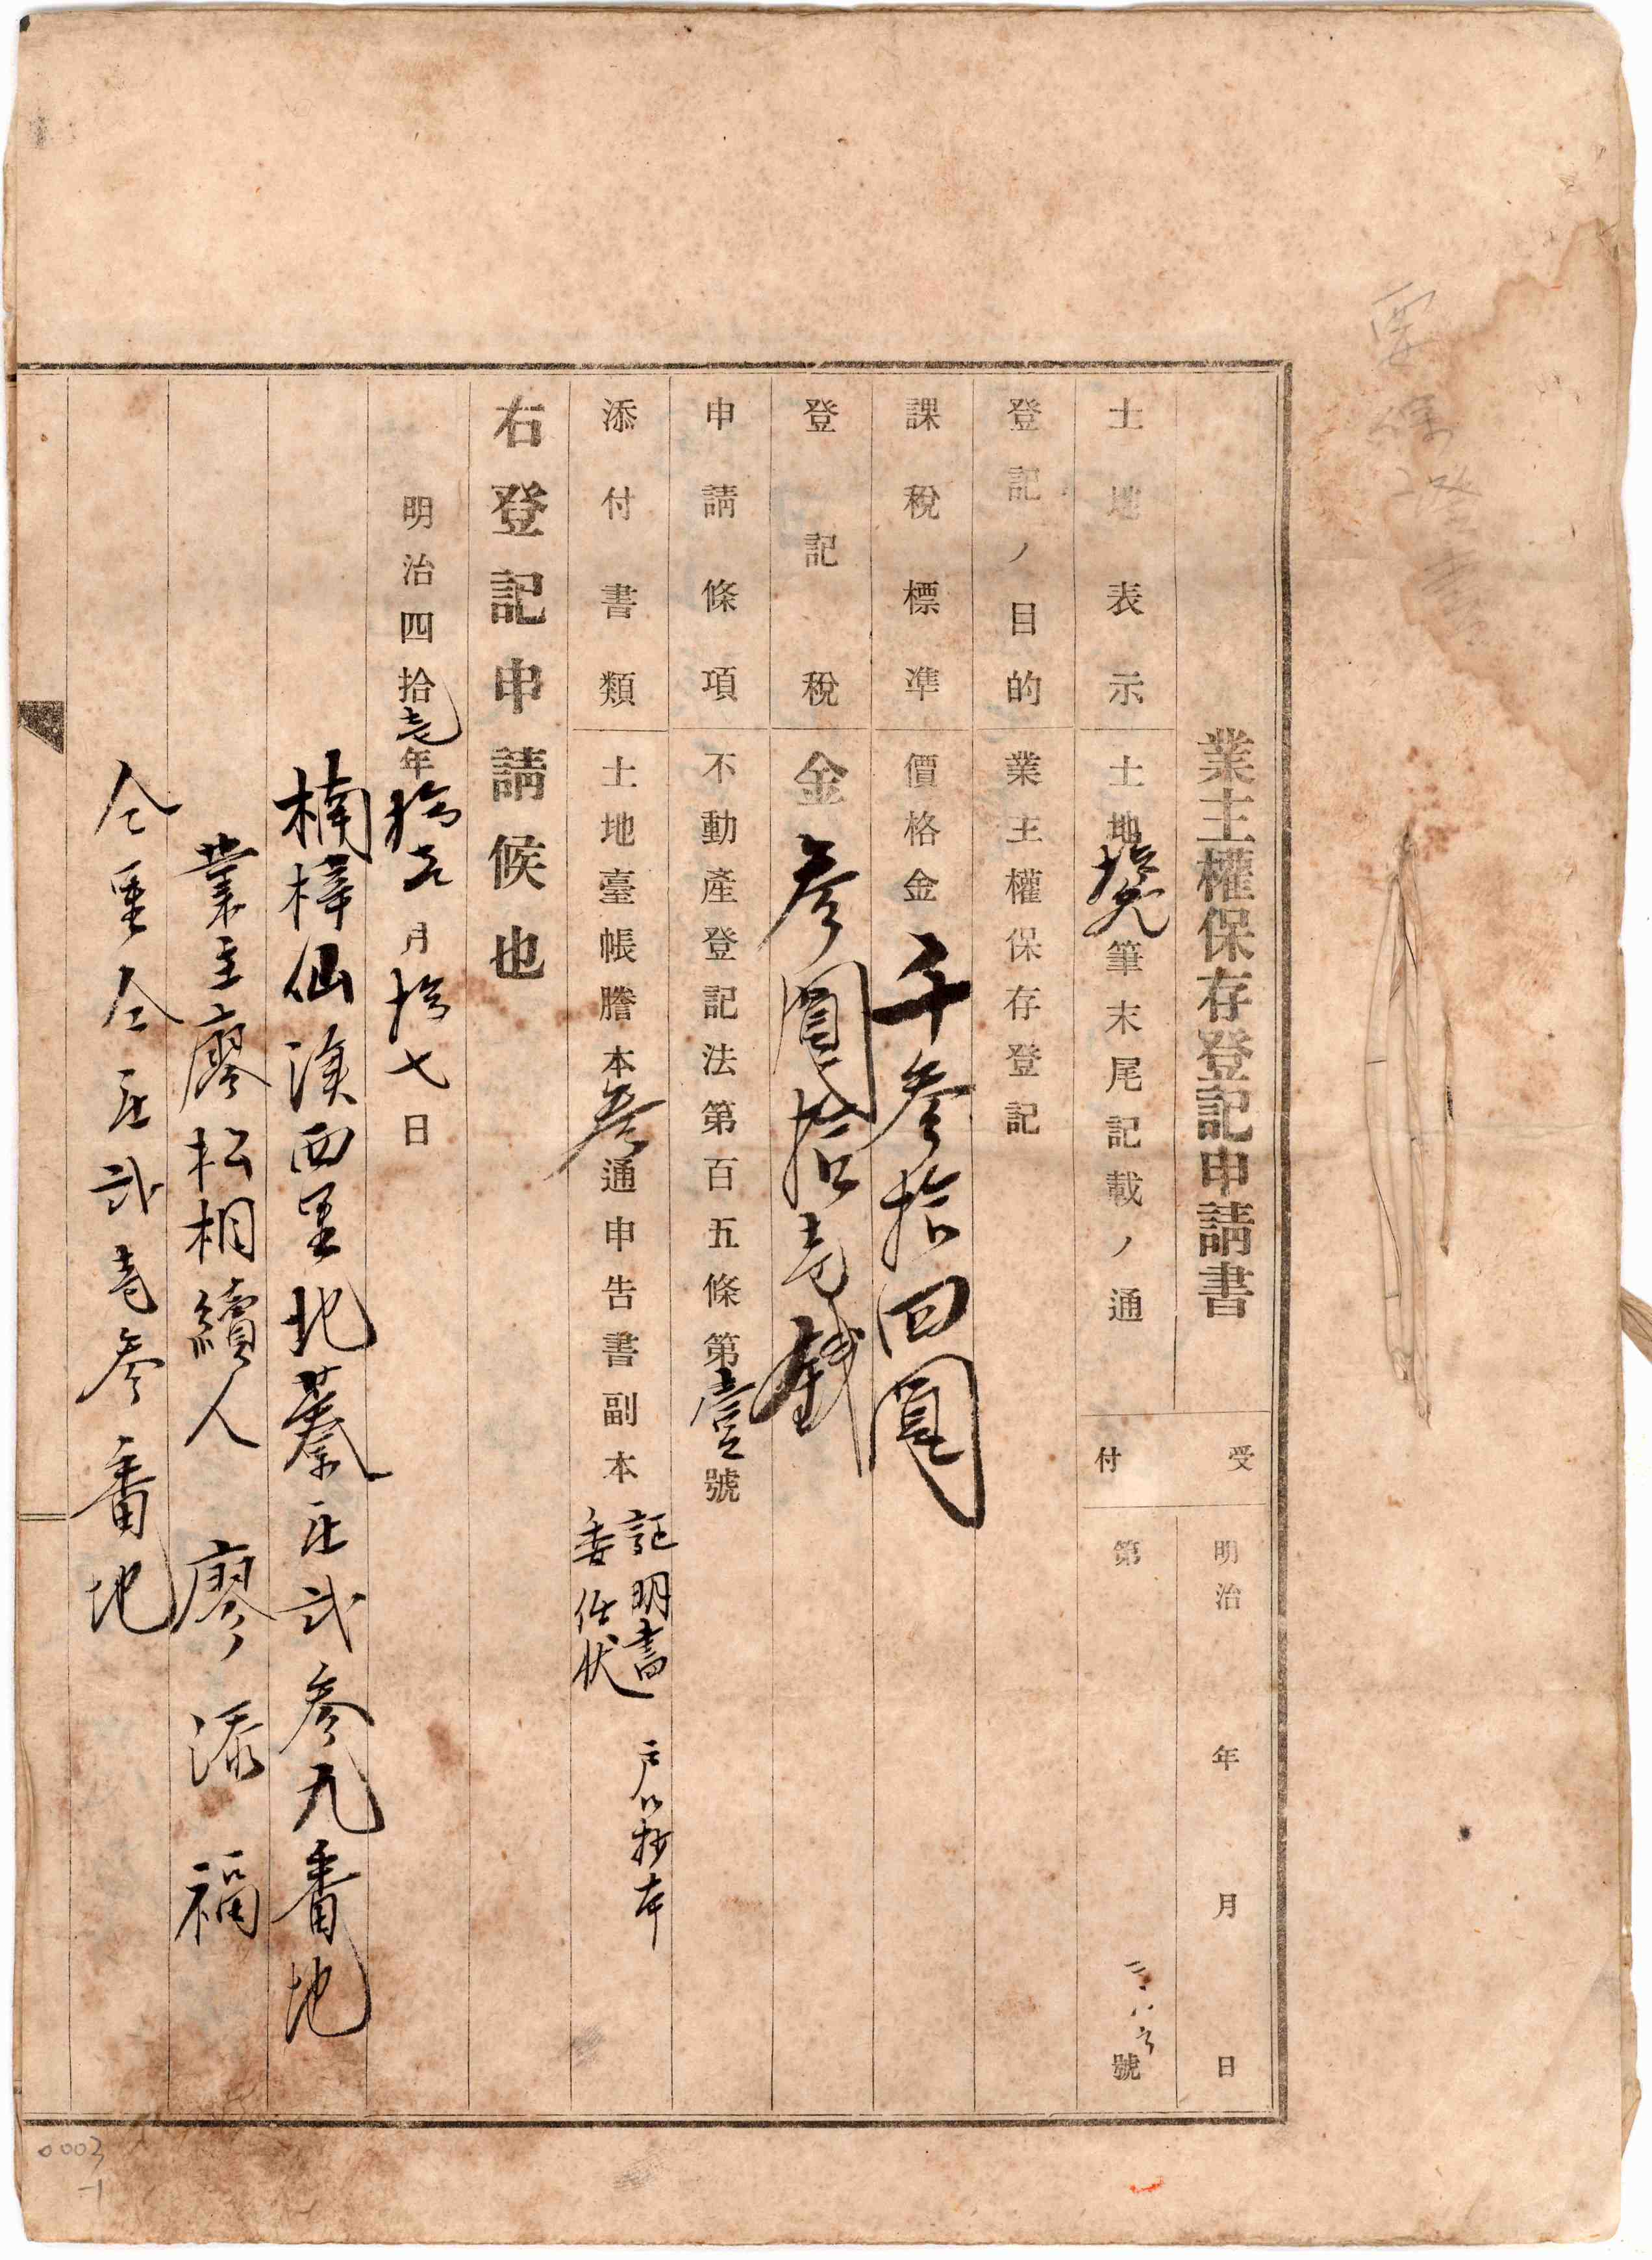 業主權保存登記申請書
受付
明治 年 月 日
第 號
土地表示 土地拾九筆末尾記載ノ通
登記ノ目的 業主權保存登記
課稅標準 價格金千參拾四圓
登記稅 金參圓拾壱錢
申請條項 不動產登記法第百五條第壹號
添付書類 土地臺帳謄本參通申告書副本
証明書 戶口抄本
委任狀
右登記申請候也
明治四拾壱年拾弍月拾七日
楠梓仙溪西里北蓁庄弍參九番地
業主廖松相續人 廖添福
仝里仝庄弍壱參番地
0003
-1